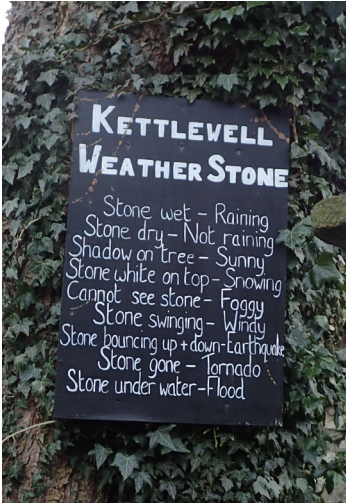 KETTLEWELL
WEATHER STONE
Stone wet - Raining
Stone dry - Not raining
Shadow on tree - Sunny
Stone white on top - Snowing
Cannot see stone - Foggy
Stone swinging - Windy
Stone bouncing up + down - Earthquake
Stone gone - Tornado
Stone under water - Flood